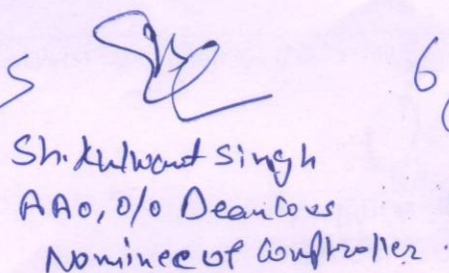 5 6
Sh. Kulwant Singh
AAO, O/o Dean COVS
Nominee of Comptroller.